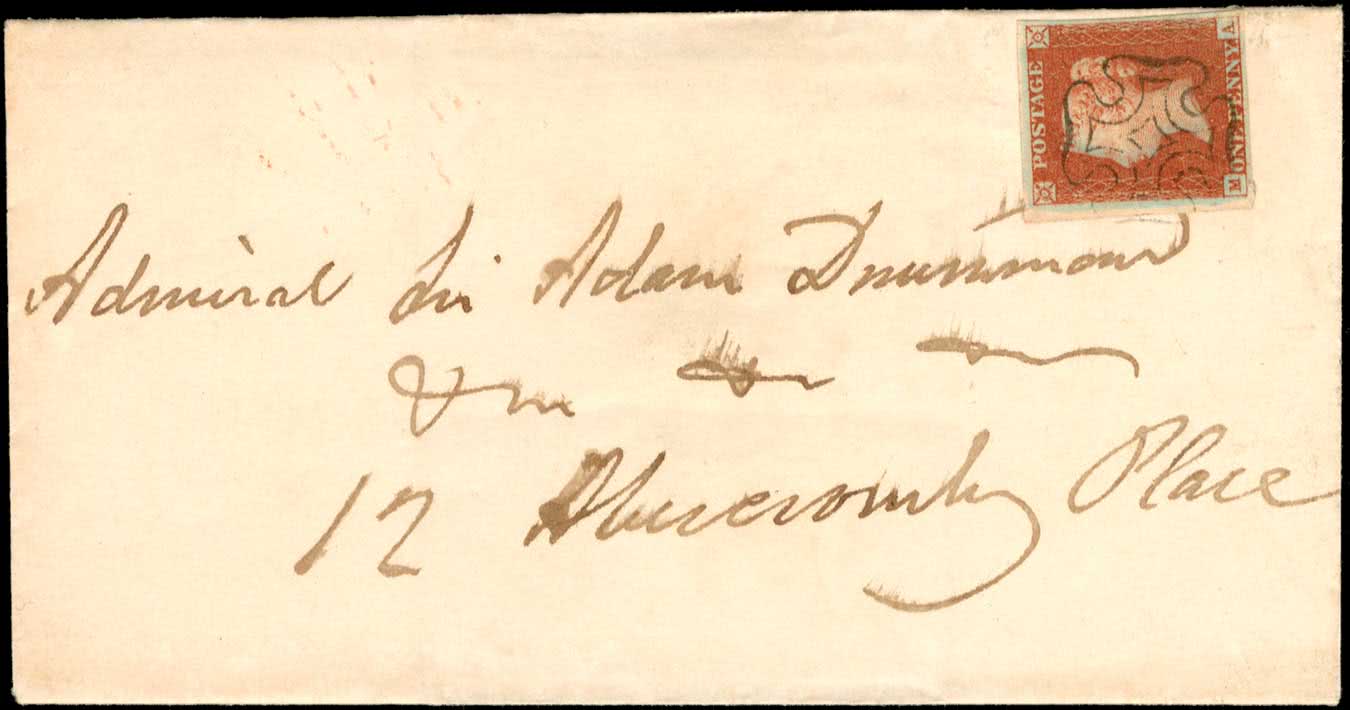 POSTAGE
ONE PENNY
E A
Admiral Sir Adam Drummond
&c &c &c
12 Abercromby Place